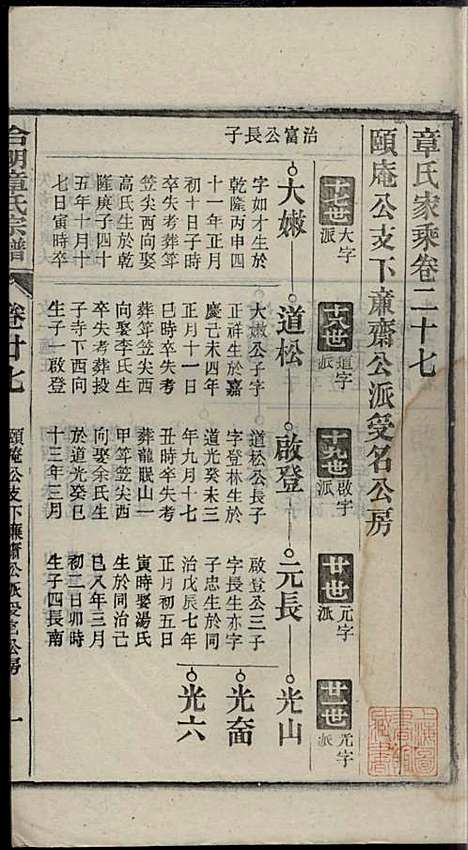 章氏家乘卷二十七
頤庵公支下亷齋公派受名公房
十七世
大字派
十八世
道字派
十九世
啟字派
廿世
元字派
廿一世
光字派
治富公長子
大嫩
道松
啟登
元長
光山
光畜
光六
字如才生於
乾隆丙申四
十一年正月
初十日子時
卒失考葬筭
笠尖西向娶
高氏生於乾
隆庚子四十
五年十月十
七日寅時卒
大嫩公子字
正祥生於嘉
慶己未四年
正月十一日
卒失考
葬筭笠尖西
向娶李氏生
卒失考葬投
子寺下西向
生子一啟登
道松公長子
字登林生於
道光癸未三
年九月十七
丑時卒失考
葬龍眠山一
甲筭笠尖西
向娶余氏生
於道光癸巳
十三年三月
啟登公三子
字長生亦字
子忠生於同
治戊辰七年
正月初五日
寅時娶湯氏
生於同治己
巳八年三月
初二日卯時
生子四長南
合明章氏宗譜
卷廿七
頤庵公支下亷齋公派受名公房
一